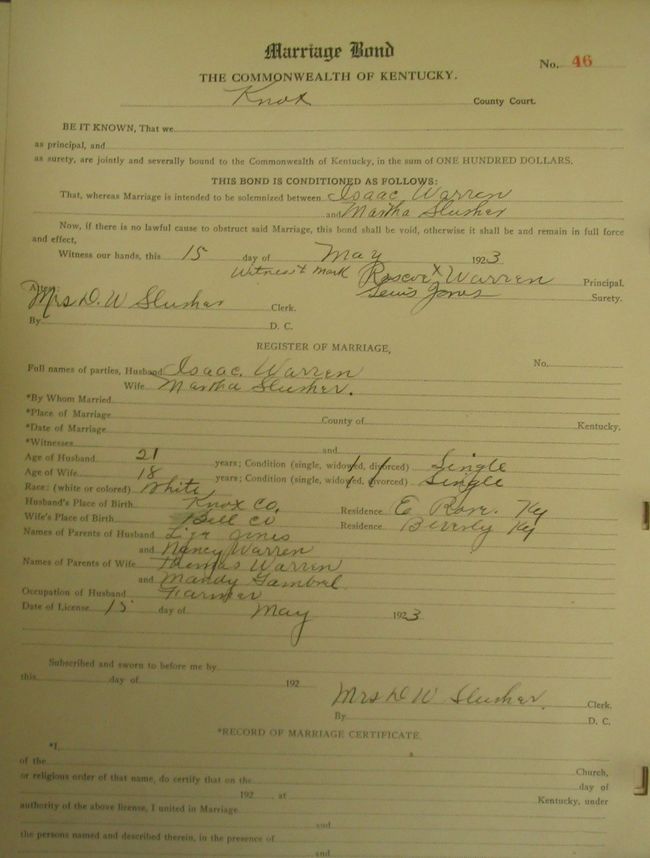 Marriage Bond
No. 46
THE COMMONWEALTH OF KENTUCKY.
Knox County Court.
BE IT KNOWN, That we
as principal, and
as surety, are jointly and severally bound to the Commonwealth of Kentucky, in the sum of ONE HUNDRED DOLLARS.
THIS BOND IS CONDITIONED AS FOLLOWS:
That, whereas Marriage is intended to be solemnized between Isaac Warren
and Martha Slusher
Now, if there is no lawful cause to obstruct said Marriage, this bond shall be void, otherwise it shall be and remain in full force
and effect,
Witness our hands, this 15 day of May 1923
Witness to mark Roscoe x Warren Principal.
Attest: Lewis Jones Surety.
Mrs D. W Slusher Clerk.
By D. C.
REGISTER OF MARRIAGE,
No.
Full names of parties, Husband Isaac Warren
Wife Martha Slusher.
*By Whom Married
*Place of Marriage County of Kentucky.
*Date of Marriage
*Witnesses and
Age of Husband 21 years; Condition (single, widowed, divorced) Single
Age of Wife 18 years; Condition (single, widowed, divorced) Single
Race: (white or colored) White
Husband's Place of Birth Knox Co, Residence Ky
Wife's Place of Birth Bell Co Residence Beverly Ky
Names of Parents of Husband
and Nancy Warren
Names of Parents of Wife Thomas Warren
and Mandy Gambrel
Occupation of Husband Farmer
Date of License 15 day of May 1923
Subscribed and sworn to before me by
this day of 192
Mrs D W Slusher. Clerk.
By D. C.
*RECORD OF MARRIAGE CERTIFICATE.
*I,
of the Church,
or religious order of that name, do certify that on the day of
192 at Kentucky, under
authority of the above license, I united in Marriage
and
the persons named and described therein, in the presence of
and